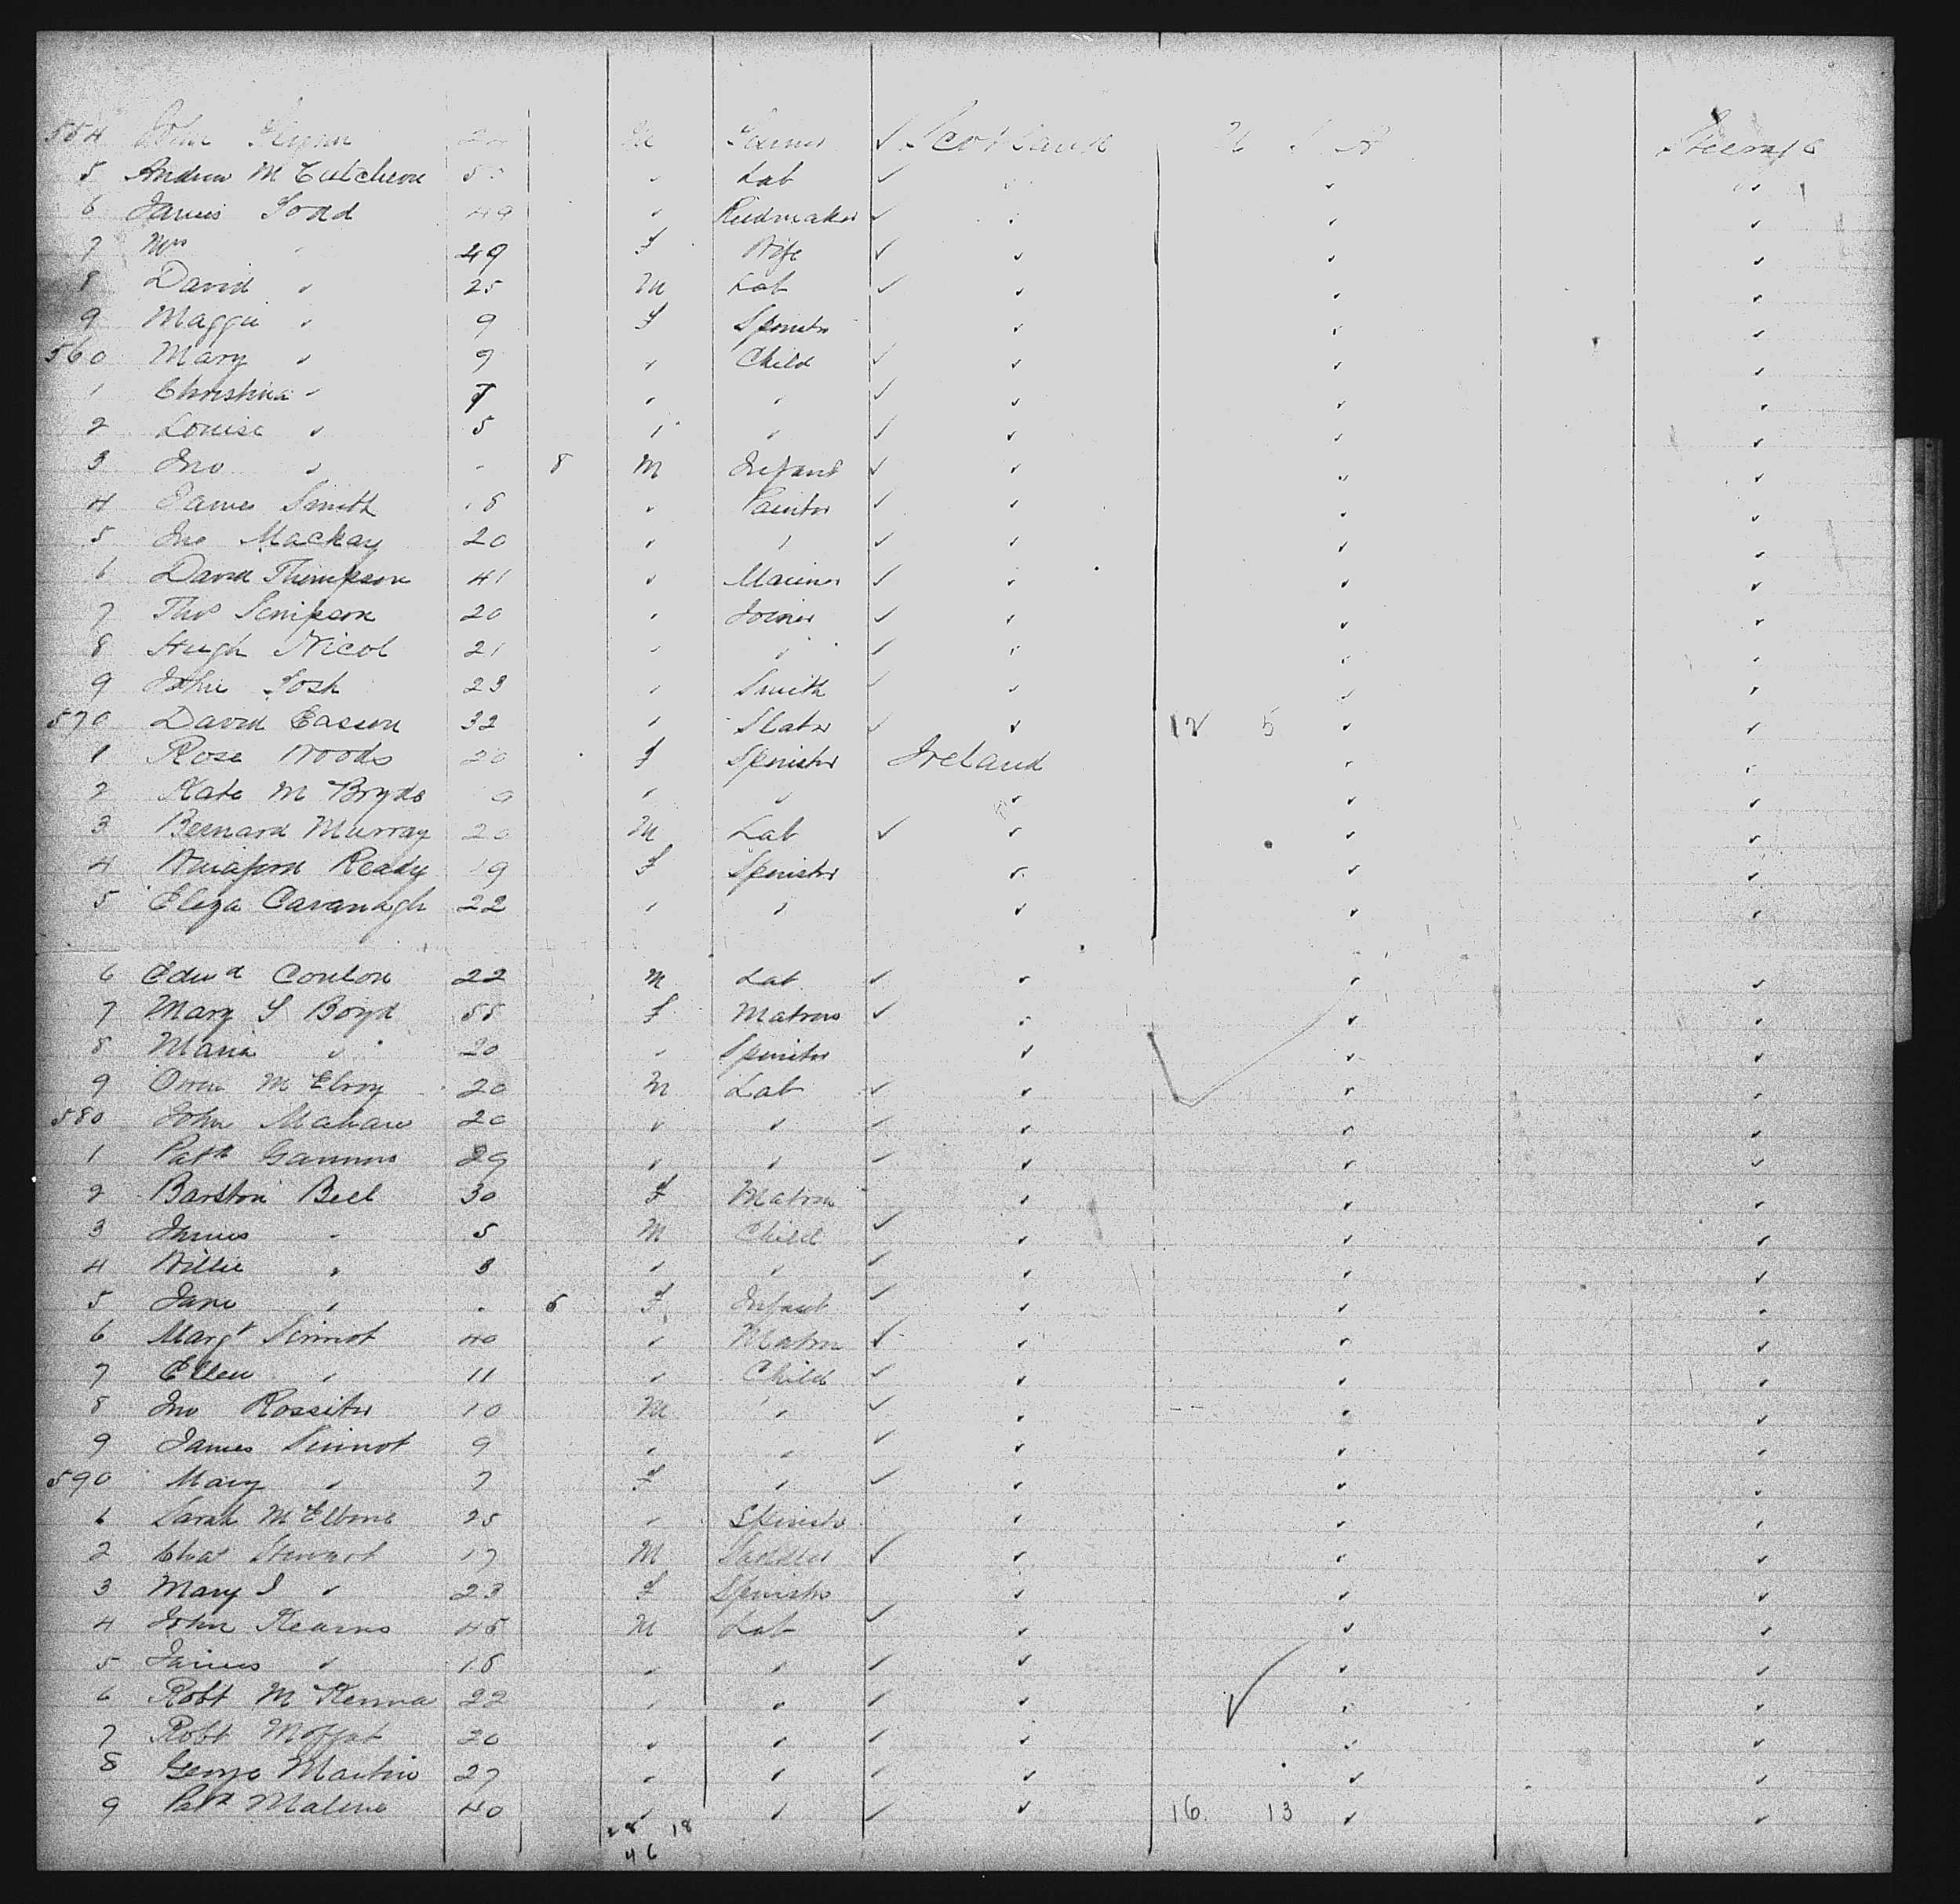 554 John Flynn M Scotland U S A Steerage
5 Andrew McCutcheon Lab ✓ " " "
6 James Todd 49 " Reedmaker ✓ " " "
7 Mrs " 49 F Wife ✓ " " "
8 David " 25 M Lab ✓ " " "
9 Maggie " 9 F Spinster " " "
560 Mary " 9 " Child ✓ " " "
1 Christina " 7 " " ✓ " " "
2 Louise " 5 " " ✓ " " "
3 Jno " - 8 M Infant ✓ " " "
4 James Smith 18 " Painter ✓ " " "
5 Jno Mackay 20 " " ✓ " " "
6 David Thompson 41 " Mariner ✓ " " "
7 Thos Simpson 20 " Joiner ✓ " " "
8 Hugh Nicol 21 " " ✓ " " "
9 John Tosh 23 " Smith ✓ " " "
570 David Easson 32 " Slater ✓ " 12 5 " "
1 Rose Woods 20 F Spinster Ireland " "
2 Kate McBryde " " " " "
3 Bernard Murray 20 M Lab ✓ " " "
4 Ready 19 F Spinster " " "
5 Eliza Cavanagh 22 " " " " "
6 Edwd Conlon 22 M Lab ✓ " " "
7 Mary S Boyd 55 F Matron ✓ " " "
8 Maria " 20 " Spinster " " "
9 Owen McElroy 20 M Lab ✓ " " "
580 John Mahan 20 " " ✓ " " "
1 Patk Gannons 29 " " ✓ " " "
2 Barston Bell 30 F Matron " " "
3 James " 5 M Child ✓ " " "
4 Willie " 3 " " ✓ " " "
5 Jane " . 6 F Infant ✓ " " "
6 Margt Sinnot 40 " Matron ✓ " " "
7 Ellen " 11 " Child ✓ " " "
8 Jno Rossiter 10 M " ✓ " " "
9 James Sinnot 9 " " ✓ " " "
590 Mary " 7 F " ✓ " " "
1 Sarah 25 " Spinster " " "
2 Chas Stewart 17 M Saddler ✓ " " "
3 Mary J " 23 F Spinster " " "
4 John Kearns 45 M Lab ✓ " " "
5 James " 18 " " ✓ " " "
6 Robt McKenna 22 " " ✓ " " "
7 Robt Moffat 20 " " ✓ " " "
8 George Martin 27 " " ✓ " " "
9 Patk Malene 40 " " ✓ " 16 13 " "
28 18
46